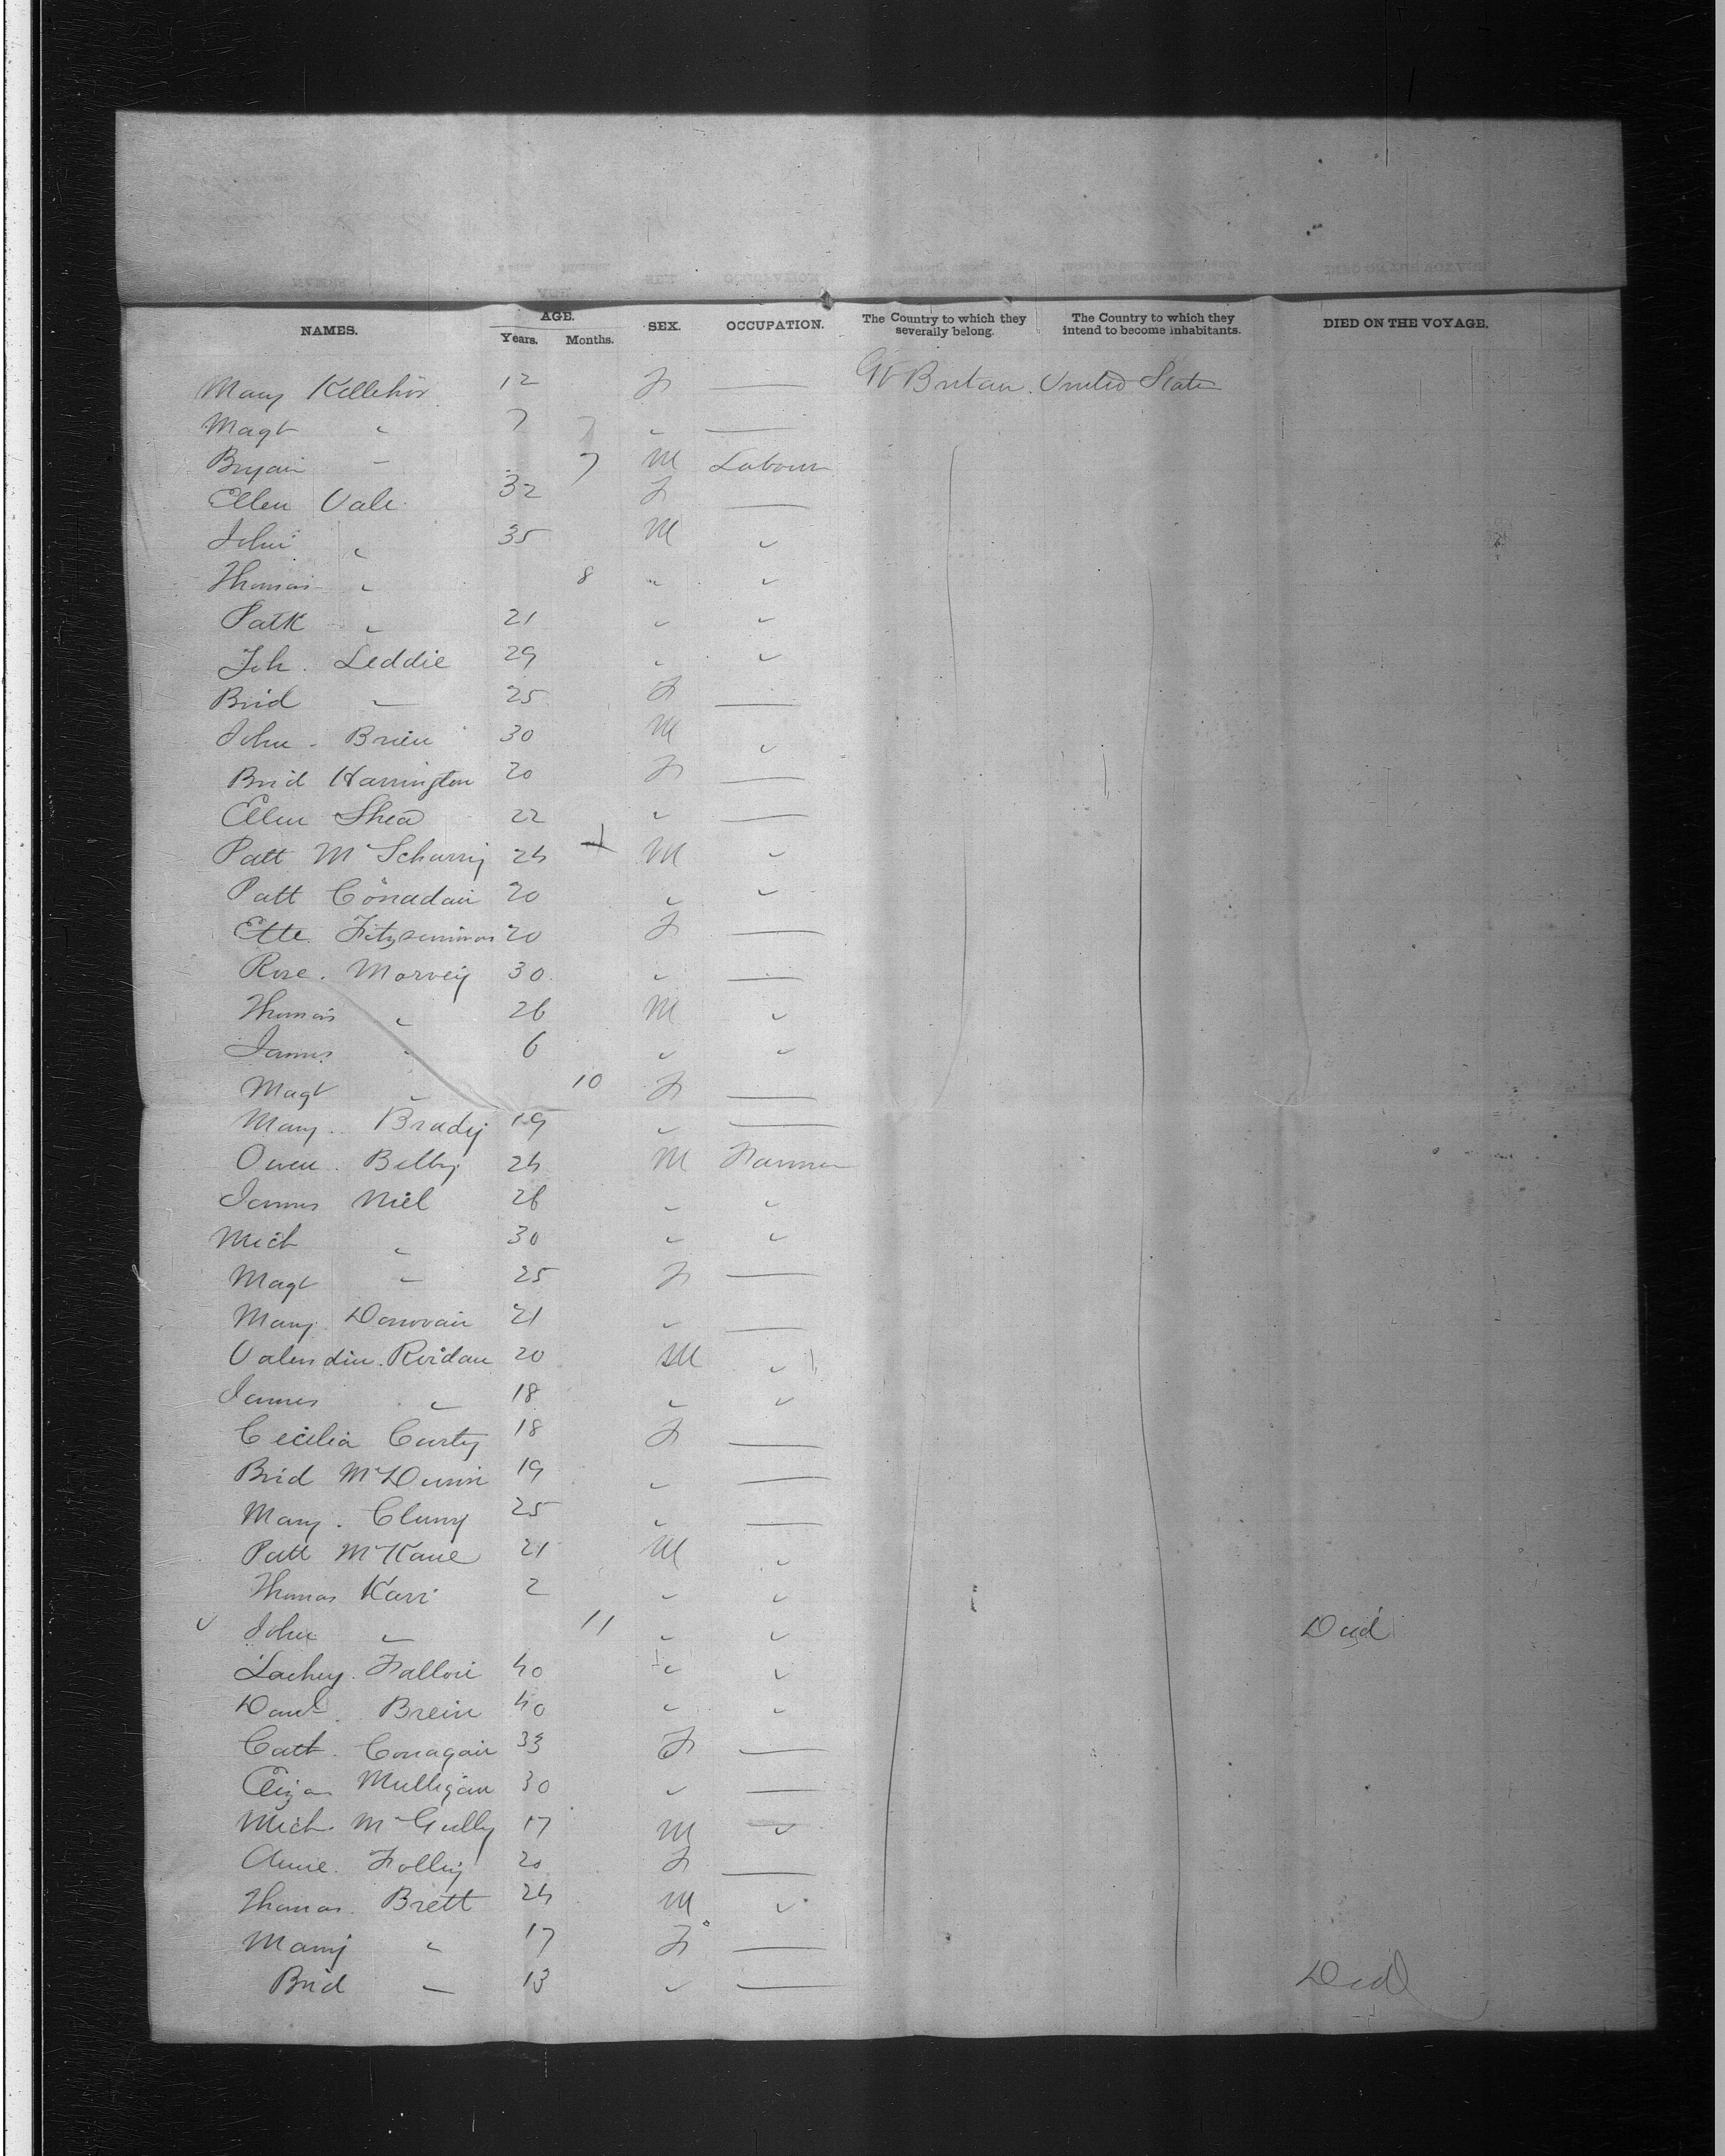 NAMES. AGE. Years. Months. SEX. OCCUPATION. The Country to which they severally belong. The Country to which they intend to become inhabitants. DIED ON THE VOYAGE.
Mary Kellehir 12 F — Gt Britain. United States
Magt " 7 " —
Bryan " 7 M Labour
Ellen Vale 32 F —
John " 35 M "
Thomas " 8 " "
Patk " 21 " "
Joh. Leddie 29 " "
Brid " 25 F —
John Brien 30 M "
Brid Harrington 20 F —
Ellen Shea 22 " —
Patt 24 M "
Patt Conadan 20 " "
Ette Fitzsimmons 20 F —
Rose Morvey 30 " —
Thomas " 26 M "
James " 6 " "
Magt " 10 F —
Mary Brady 19 " —
Owen Belby 24 M Farmer
James Niel 26 " "
Mich " 30 " "
Magt " 25 F —
Mary Donovan 21 " —
Valendin Reidan 20 M "
James " 18 " "
Cecilia Curty 18 F —
Brid McDunn 19 " —
Mary Cluny 25 " —
Patt McKane 21 M "
Thomas Karr 2 " "
John " 11 " " Died
Fallon 40 " "
Danl. Brein 40 " "
Cath. Conagan 33 F —
Eliza Mulligan 30 " —
Mich. McGully 17 M "
Anne Folley 20 F —
Thomas Brett 24 M "
Mary " 17 F —
Brid " 13 " — Died